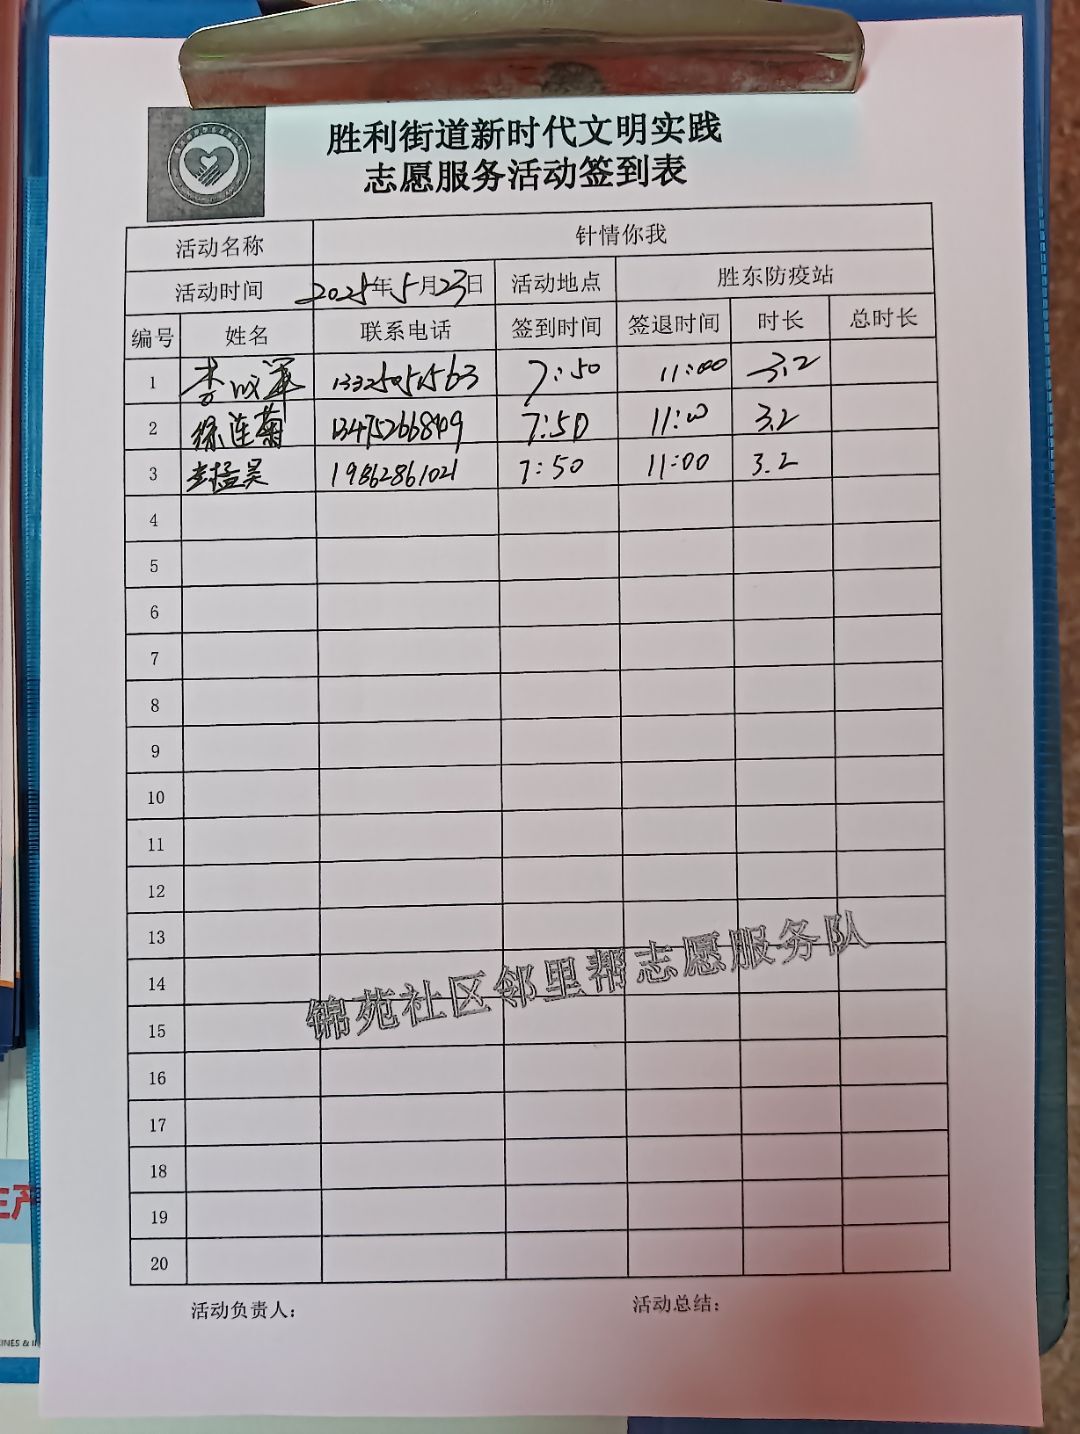 胜利街道新时代文明实践
志愿服务活动签到表
活动名称 针情你我
活动时间 2025年5月23日 活动地点 胜东防疫站
编号 姓名 联系电话 签到时间 签退时间 时长 总时长
1 李 13325051563 7:50 11:00 3.2
2 徐连菊 13475266849 7:50 11:00 3.2
3 孟昊 19862861021 7:50 11:00 3.2
4
5
6
7
8
9
10
11
12
13
14
锦苑社区邻里帮志愿服务队
15
16
17
18
19
20
活动负责人: 活动总结:
生产
INES &